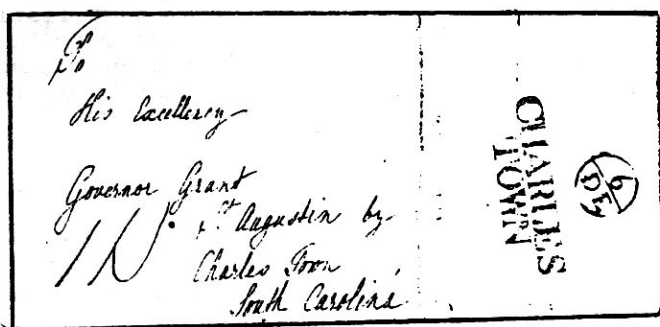 To
His Excellency
Governor Grant
St Augustin by
Charles Town
South Carolina
CHARLES
TOWN